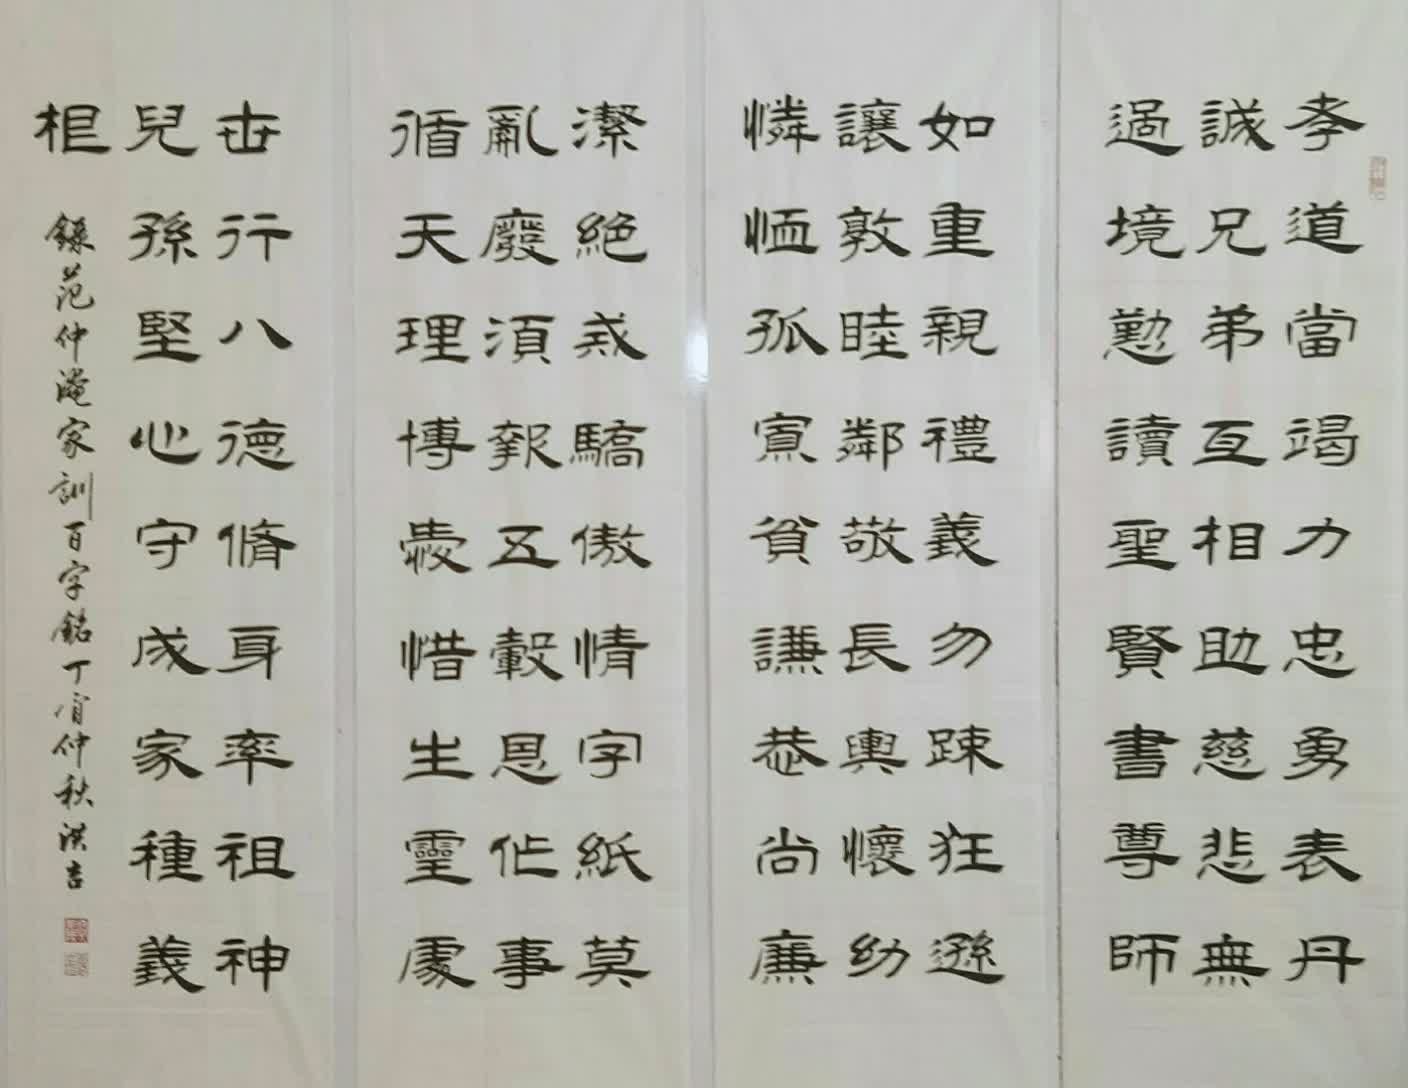 孝道當竭力忠勇表丹
誠兄弟互相助慈悲無
過境勤讀聖賢書尊師
如重親禮義勿疎狂遜
讓敦睦鄰敬長與懷幼
憐恤孤寡貧謙恭尚廉
潔絕戒驕傲情字紙莫
亂廢須報五穀恩作事
循天理博愛惜生靈處
世行八德脩身率祖神
兒孫堅心守成家種義
根
錄范仲淹家訓百字銘丁酉仲秋洪吉